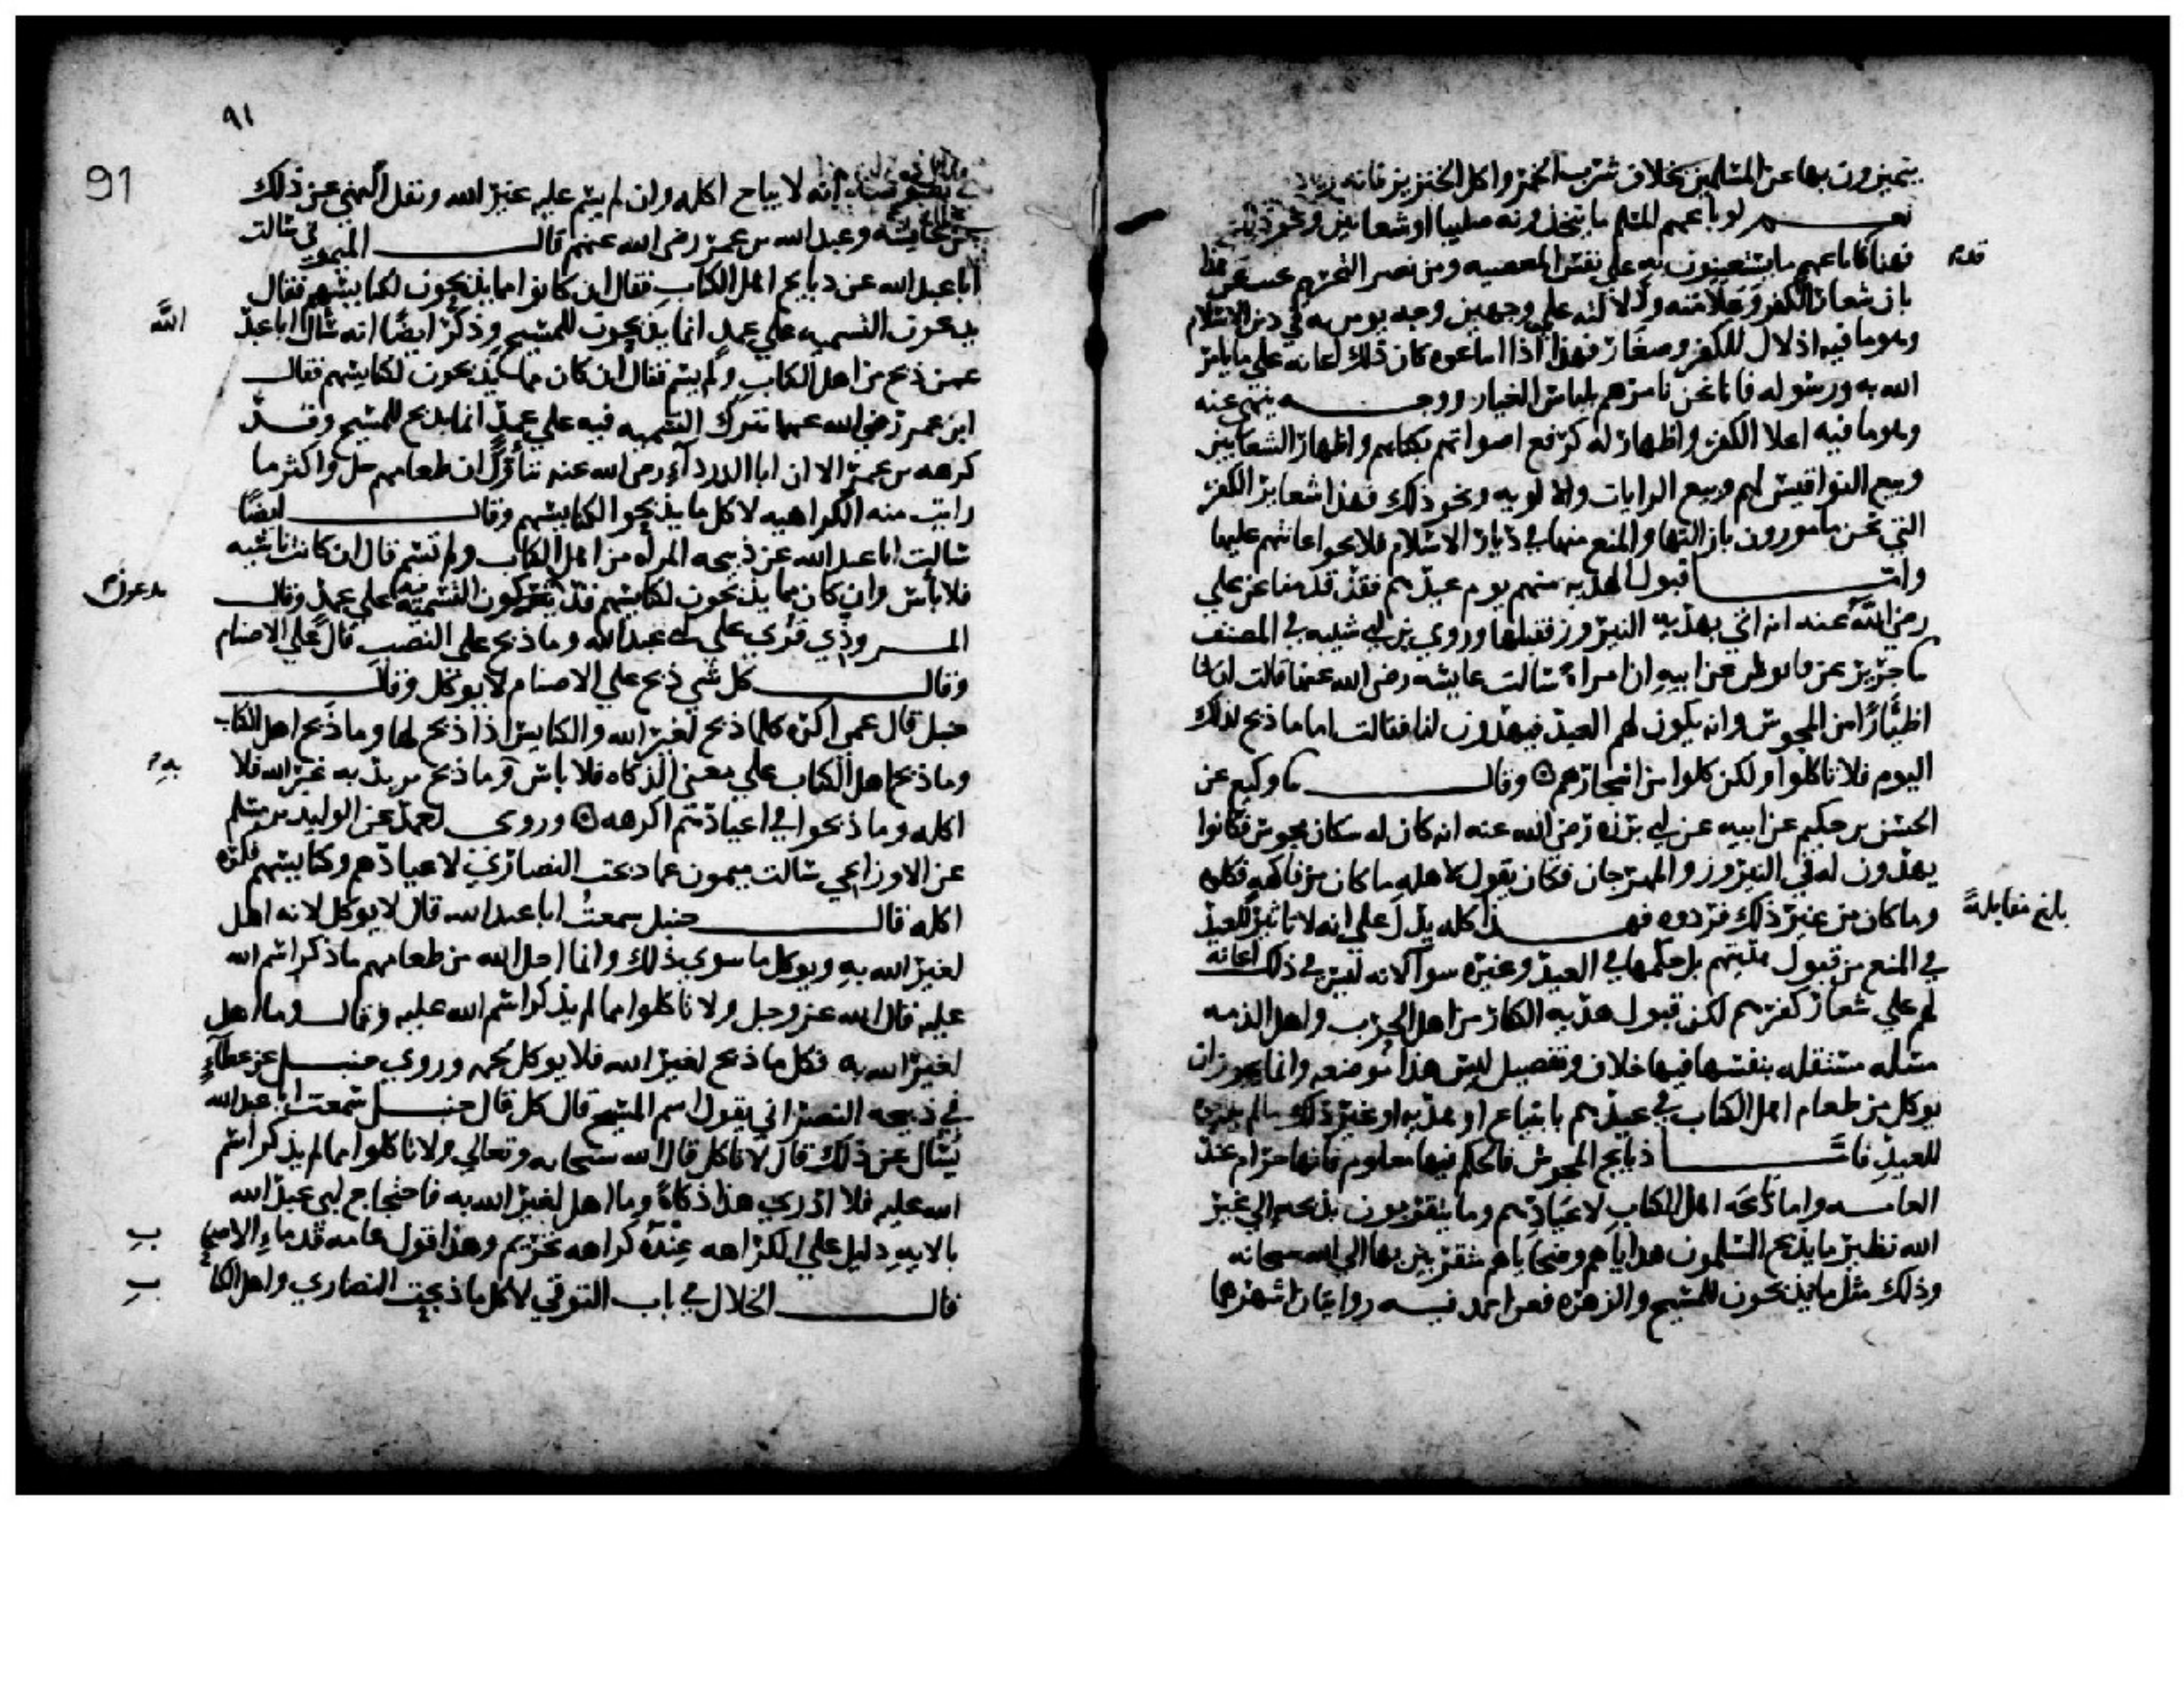 يتميزون بها عن المسلمين بخلاف شرب الخمر واكل الخنزير فانه
نعم لو باعهم المسلم ما يتخذونه صليبا او شعانين ونحو ذلك
فهنا قد باعهم ما يستعينون به علي نفس المعصيه ومن نصر التحريم
قدم
بان شعار الكفر وعلامته ودلالته علي وجهين وجه يومر به في دين الاسلام
وهو ما فيه اذلال للكفر وصغار فهذا اذا ابتاعوه كان ذلك اعانه علي ما يامر
الله به ورسوله فانا نحن نامرهم بلباس الغيار ووجه ينهي عنه
وهو ما فيه اعلا الكفر واظهار له كرفع اصواتهم بكتابهم واظهار الشعانين
وبيع النواقيس لهم وبيع الرايات والالويه ونحو ذلك فهذا شعاير الكفر
التي نحن مامورون بازالتها والمنع منها في ديار الاسلام فلا يجوز اعانتهم عليها
واما قبول الهديه منهم يوم عيدهم فقد قدمنا عن علي
رضي الله عنه انه اتي بهديه النيروز فقبلها وروي بن ابي شيبه في المصنف
ما جرير عن قابوس عن ابيه ان امراه سالت عايشه رضي الله عنها قالت ان لنا
اظارا من المجوس وانه يكون لهم العيد فيهدون لنا فقالت اما ما ذبح لذلك
اليوم فلا تاكلوا ولكن كلوا من اشجارهم وقال ما وكيع عن
الحسن بن حكيم عن ابيه عن ابي برزه رضي الله عنه انه كان له سكان مجوس فكانوا
يهدون له في النيروز والمهرجان فكان يقول لاهله ما كان من فاكهه فكلوه
وما كان من غير ذلك فردوه فهذا كله يدل علي انه لا تاثير للعيد
بلغ مقابلة
في المنع من قبول هديتهم بل حكمها في العيد وغيره سوا لانه ليس في ذلك اعانه
لهم علي شعار كفرهم لكن قبول هديه الكفار من اهل الحرب واهل الذمه
مسله مستقله بنفسها فيها خلاف وتفصيل ليس هذا موضعه وانما يجوز ان
يوكل من طعام اهل الكتاب في عيدهم بابتياع او هديه او غير ذلك مالم يذبحوه
للعيد فاما ذبايح المجوس فالحكم فيها معلوم فانها حرام عند
العامه واما ما ذبحه اهل الكتاب لاعيادهم وما يتقربون بذبحه الي غير
الله نظير ما يذبح المسلمون هداياهم وضحاياهم متقربين بها الي الله سبحانه
وذلك مثل ما يذبحون للمسيح والزهره فعن احمد فيه روايتان اشهرها
٩١
91
في نصوصه انه لا يباح اكله وان لم يسم عليه غير الله ونقل النهي عن ذلك
عن عايشه وعبد الله بن عمر رضي الله عنهم قال الميموني سالت
ابا عبد الله عن ذبايح اهل الكتاب فقال ان كانوا مما يذبحون لكنايسهم فقال
يدعون التسميه علي عمد انما يذبحون للمسيح وذكر ايضا انه سال ابا عبد
الله
عمن ذبح من اهل الكتاب ولم يسم فقال ان كان مما يذبحون لكنايسهم فقال
ابن عمر رضي الله عنهما تترك التسميه فيه علي عمد انما يذبح للمسيح وقد
كرهه بن عمر الا ان ابا الدردآء رضي الله عنه تتاول ان طعامهم حل واكثر ما
رايت منه الكراهيه لاكل ما يذبحوا لكنايسهم وقال ايضا
سالت ابا عبد الله عن ذبيحه المراه من اهل الكتاب ولم تسم قال ان كانت ناسيه
فلا باس وان كان مما يذبحون لكنايسهم قد يتركون التسميه فيه علي عمد وقال
يدعون
المروذي قري علي ابي عبد الله وما ذبح علي النصب قال علي الاصنام
وقال كل شي ذبح علي الاصنام لا يوكل وقال
حنبل قال عمي اكره كلما ذبح لغير الله والكنايس اذا ذبح لها وما ذبح اهل الكتاب
وما ذبح اهل الكتاب علي معني الذكاه فلا باس وما ذبح يريد به غير الله فلا
اكله وما ذبحوا في اعيادهم اكرهه وروي احمد عن الوليد بن مسلم
عن الاوزاعي سالت ميمون عما ذبحت النصاري لاعيادهم وكنايسهم فكره
اكله قال حنبل سمعت ابا عبد الله قال لا يوكل لانه اهل
لغير الله به ويوكل ما سوي ذلك وانما احل الله من طعامهم ما ذكر اسم الله
عليه قال الله عز وجل ولا تاكلوا مما لم يذكر اسم الله عليه وقال وما اهل
لغير الله به فكل ما ذبح لغير الله فلا يوكل لحمه وروي حنبل عن عطآء
في ذبيحه النصراني يقول اسم المسيح قال كل قال حنبل سمعت ابا عبد الله
يسال عن ذلك قال لا تاكل قال الله سبحانه وتعالي ولا تاكلوا مما لم يذكر اسم
الله عليه فلا اري هذا ذكاة وما اهل لغير الله به فاحتجاج ابي عبد الله
بالايه دليل علي ان الكراهه عنده كراهه تحريم وهذا قول عامه قدماء الاصحا
ب
قال الخلال في باب التوقي لاكل ما ذبحت النصاري واهل الكتا
ب